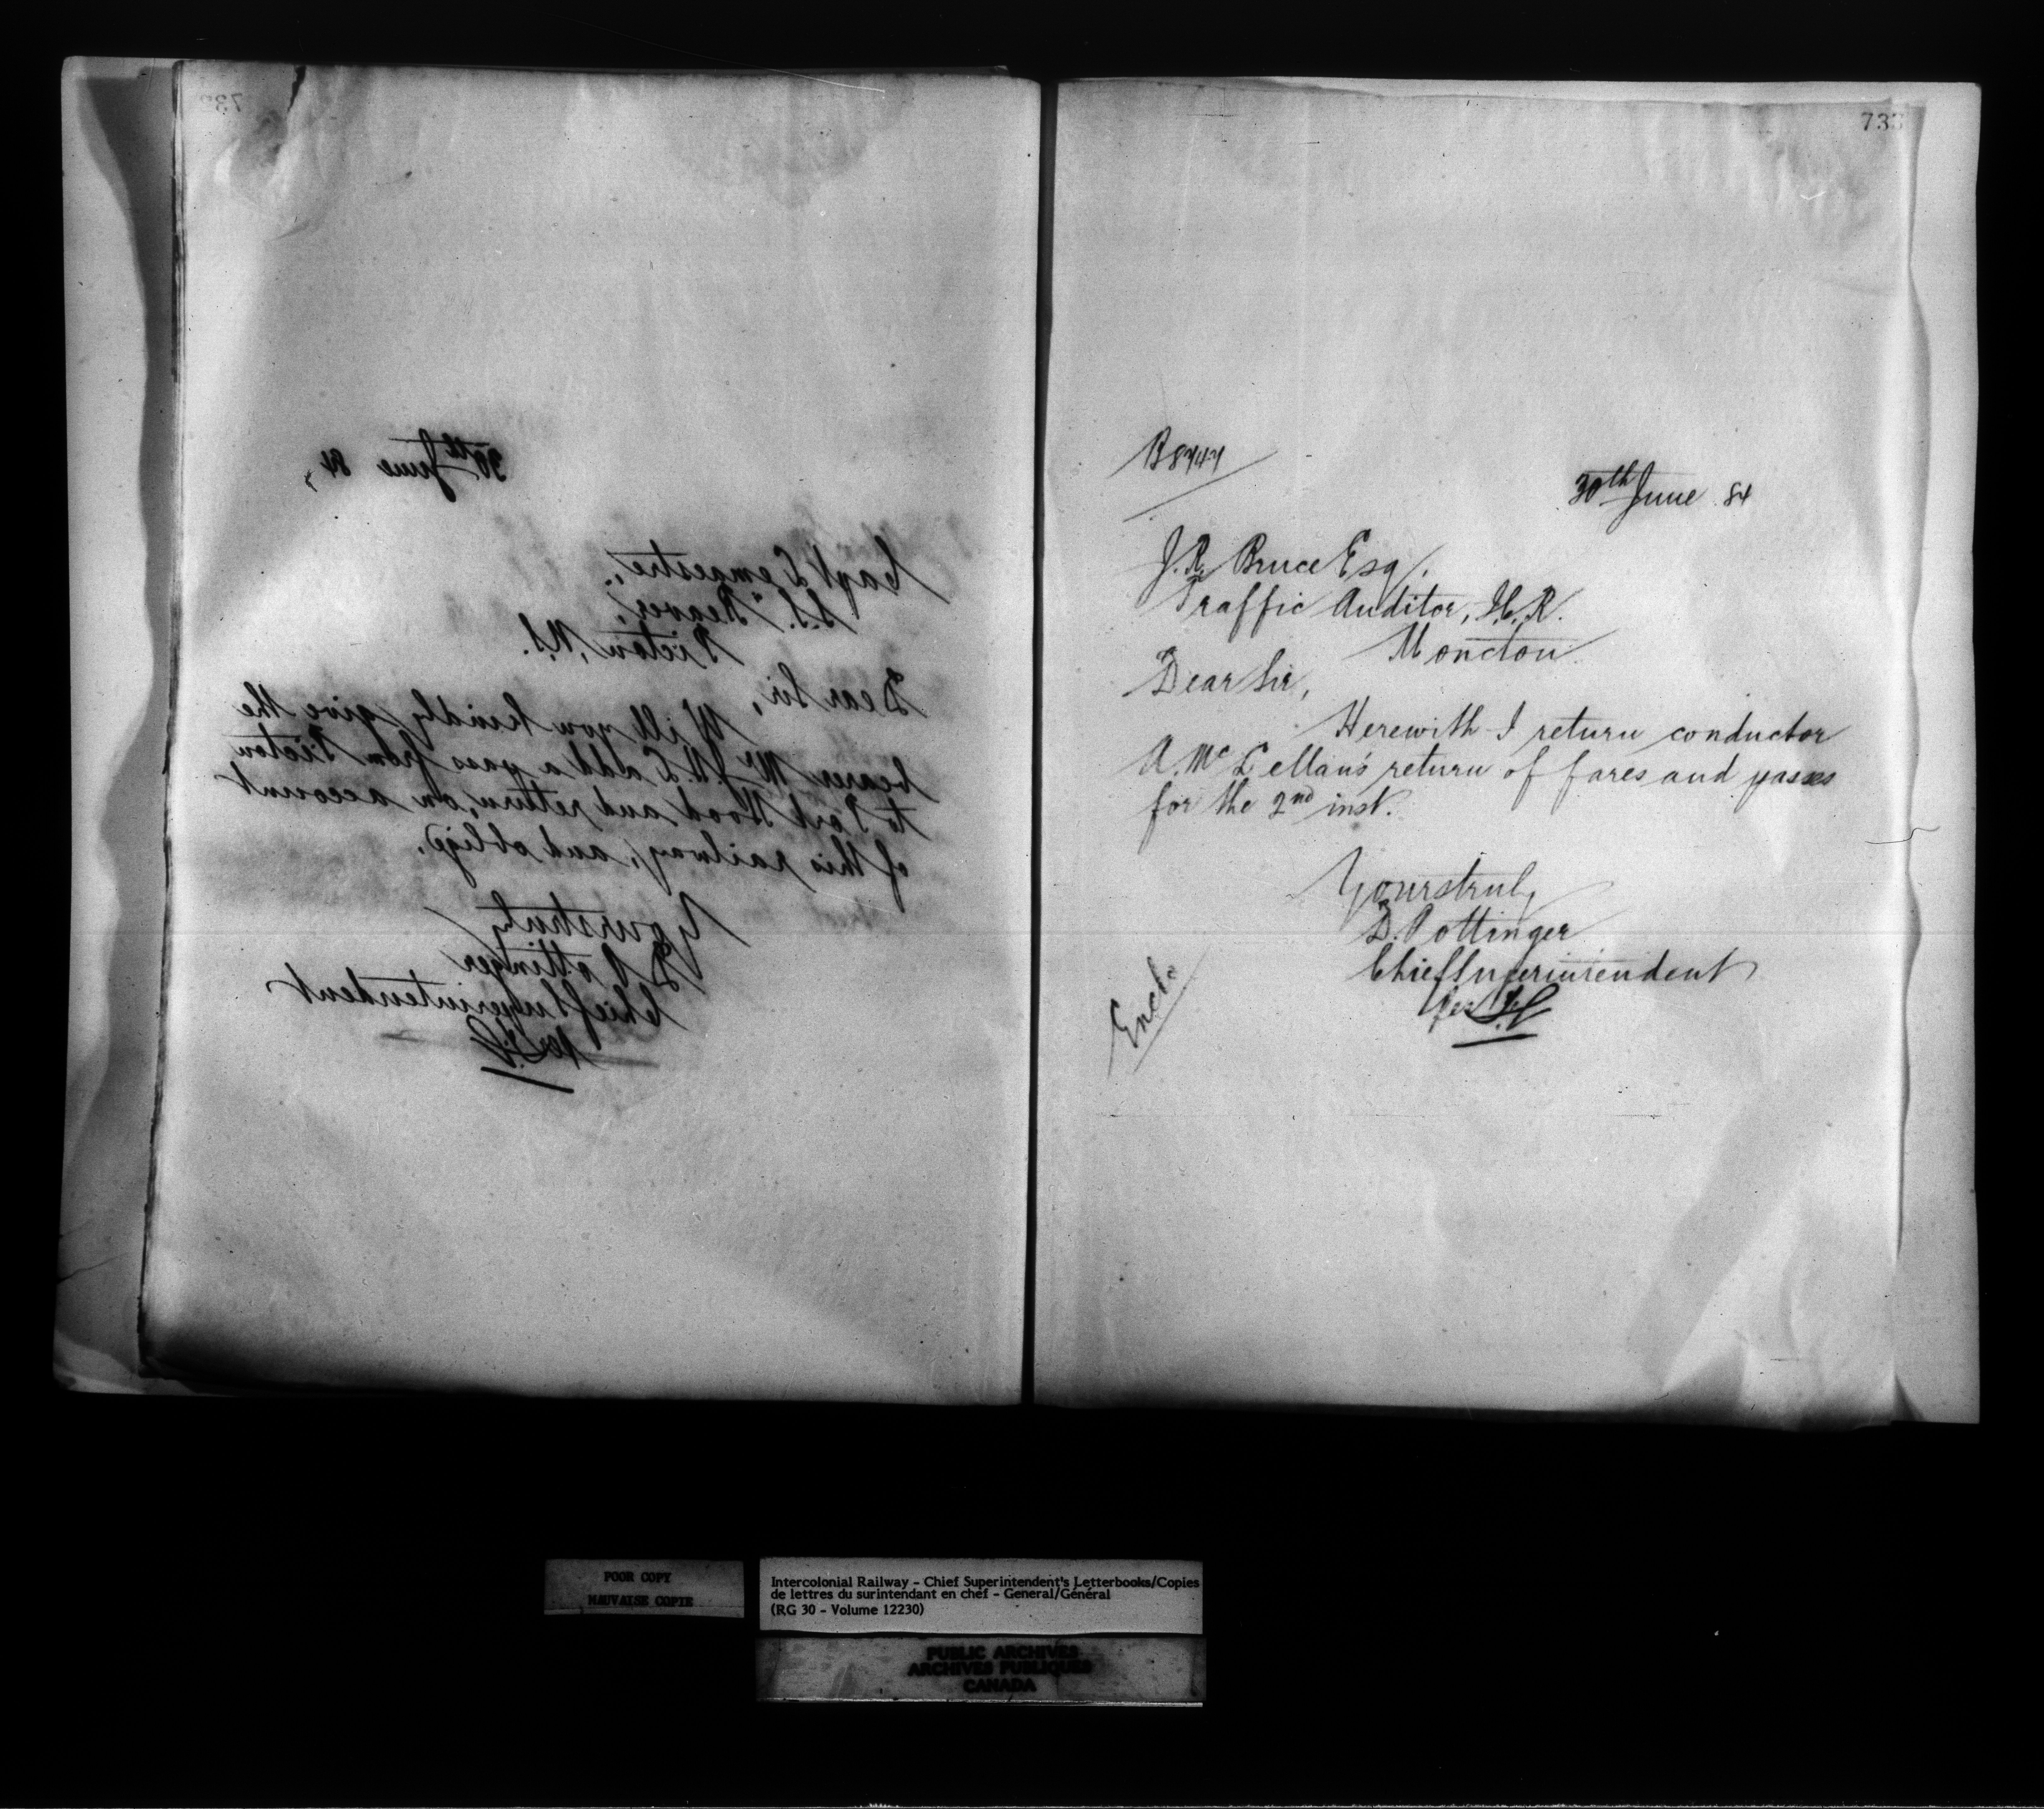 732
30th June 84,
Capt Lemaestre,
S.S. "Beaver,"
Pictou, N.S.
Dear Sir,
Will you kindly give the
bearer Mr. J. N. E add a pass from Pictou
to Port Hood and return, on account
of this railway, and oblige,
Yours truly
D Pottinger
Chief Superintendent
per
733
B8747
30th June 84
J. R. Bruce Esq.
Traffic Auditor, I.C.R.
Moncton
Dear Sir,
Herewith I return conductor
A. McLellan's return of fares and passes
for the 2nd inst.
Yours truly
D. Pottinger
Chief Superintendent
per
Enclo
POOR COPY
MAUVAISE COPIE
Intercolonial Railway - Chief Superintendent's Letterbooks/Copies
de lettres du surintendant en chef - General/Général
(RG 30 - Volume 12230)
PUBLIC ARCHIVES
ARCHIVES PUBLIQUES
CANADA